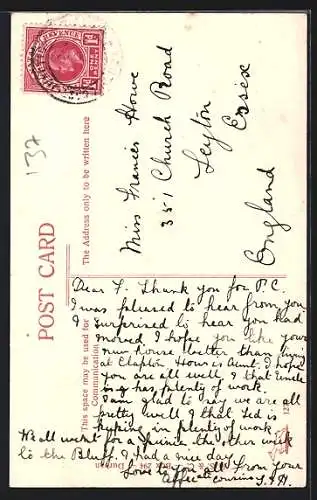 POST CARD
The Address only to be written here
This space may be used for Communication
132
REVENUE
Miss Frances Howe
351 Church Road
Leyton
Essex
England
Dear F. Thank you for P.C.
I was pleased to hear from you
& surprised to hear you had
moved, I hope you like your
new house better than living
at Clapton. How is Aunt. I hope
you are all well, & that Uncle
has plenty of work.
I am glad to say we are all
pretty well & that Ted is
keeping in plenty of work.
We all went for a the other week
to the Bluff, & had a nice day.
Love to you all from your
Affecate cousins
Durban